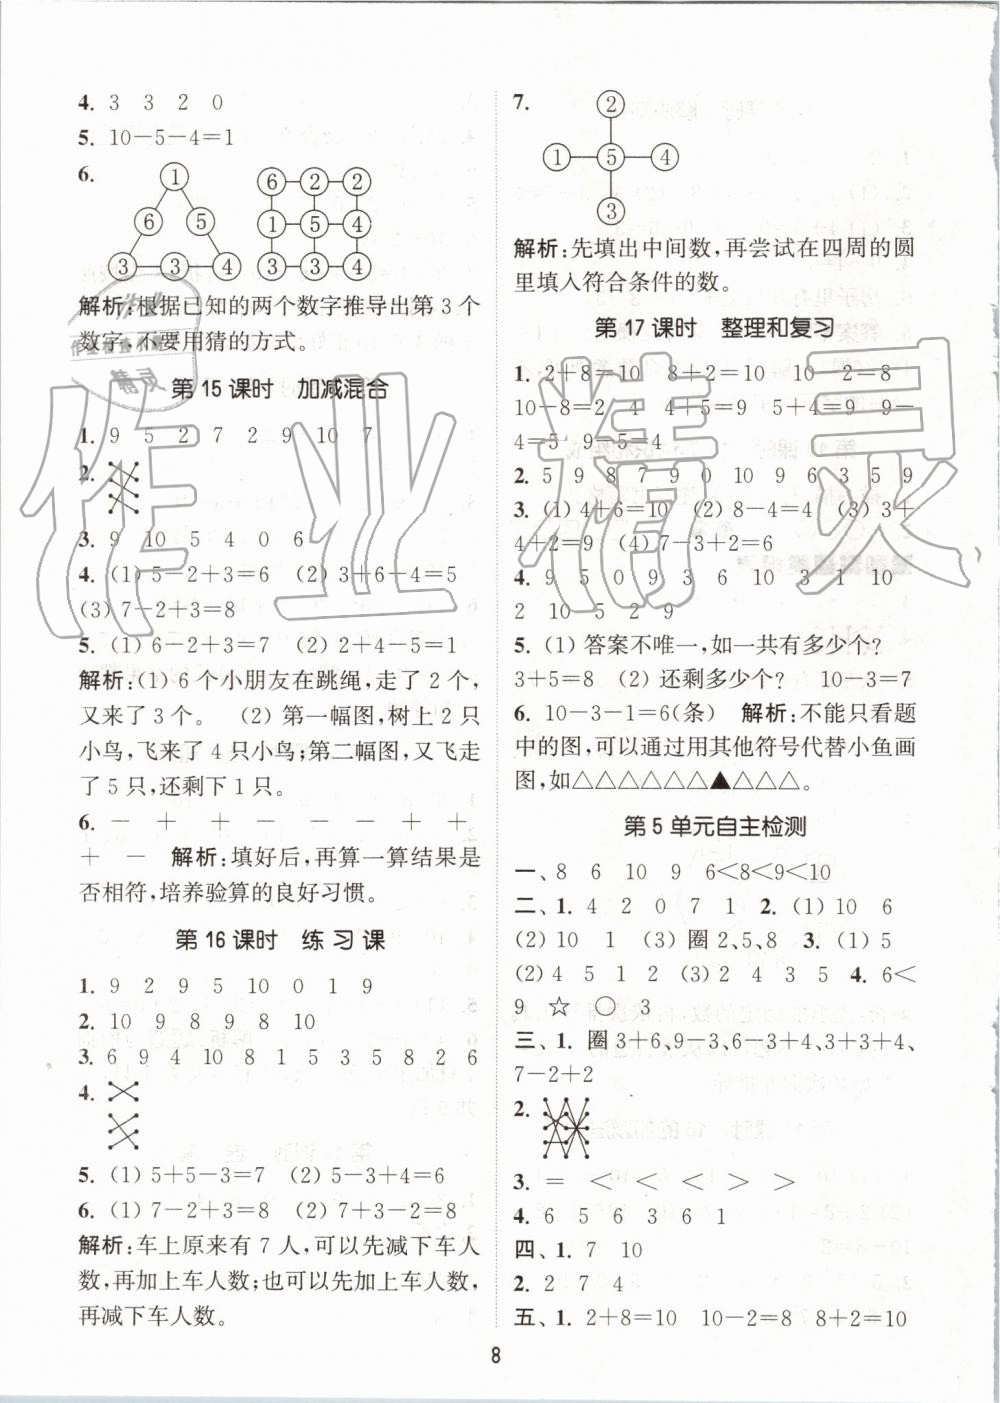 4. 3 3 2 0
5. 10-5-4=1
6.
① ⑥ ⑤ ③ ③ ④
⑥ ② ② ① ⑤ ④ ③ ③ ④
解析:根据已知的两个数字推导出第3个
数字,不要用猜的方式。
第15课时 加减混合
1. 9 5 2 7 2 9 10 7
2.
3. 9 10 5 4 0 6
4. (1) 5-2+3=6 (2) 3+6-4=5
(3) 7-2+3=8
5. (1) 6-2+3=7 (2) 2+4-5=1
解析:(1) 6个小朋友在跳绳,走了2个,
又来了3个。 (2) 第一幅图,树上2只
小鸟,飞来了4只小鸟;第二幅图,又飞走
了5只,还剩下1只。
6. - + + - - - + +
+ - 解析:填好后,再算一算结果是
否相符,培养验算的良好习惯。
第16课时 练习课
1. 9 2 9 5 10 0 1 9
2. 10 9 8 9 8 10
3. 6 9 4 10 8 1 5 3 5 8 2 6
4.
5. (1) 5+5-3=7 (2) 5-3+4=6
6. (1) 7-2+3=8 (2) 7+3-2=8
解析:车上原来有7人,可以先减下车人
数,再加上车人数;也可以先加上车人数,
再减下车人数。
7.
② ① ⑤ ④ ③
解析:先填出中间数,再尝试在四周的圆
里填入符合条件的数。
第17课时 整理和复习
1. 2+8=10 8+2=10 10-2=8
10-8=2 4+5=9 5+4=9 9-
4=5 9-5=4
2. 5 9 8 7 9 0 10 9 6 3 5 9
3. (1) 4+6=10 (2) 8-4=4 (3) 3+
4+2=9 (4) 7-3+2=6
4. 9 5 0 9 3 6 10 3 1 10
2 10 5 2 9
5. (1) 答案不唯一,如一共有多少个?
3+5=8 (2) 还剩多少个? 10-3=7
6. 10-3-1=6(条) 解析:不能只看题
中的图,可以通过用其他符号代替小鱼画
图,如△△△△△△▲△△△。
第5单元自主检测
一、8 6 10 9 6<8<9<10
二、1. 4 2 0 7 1 2. (1) 10 6
(2) 10 1 (3) 圈2、5、8 3. (1) 5
(2) 4 5 1 2 (3) 2 4 3 5 4. 6<
9 ☆ ○ 3
三、1. 圈3+6、9-3、6-3+4、3+3+4、
7-2+2
2.
3. = < < < > >
4. 6 5 6 3 6 1
四、1. 7 10
2. 2 7 4
五、1. 2+8=10 10-2=8 8+2=10
8
作业精灵